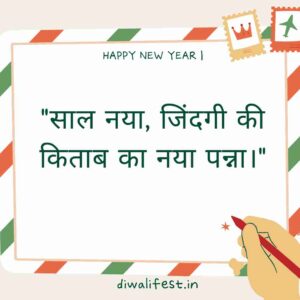 HAPPY NEW YEAR |
"साल नया, जिंदगी की
किताब का नया पन्ना।"
diwalifest.in